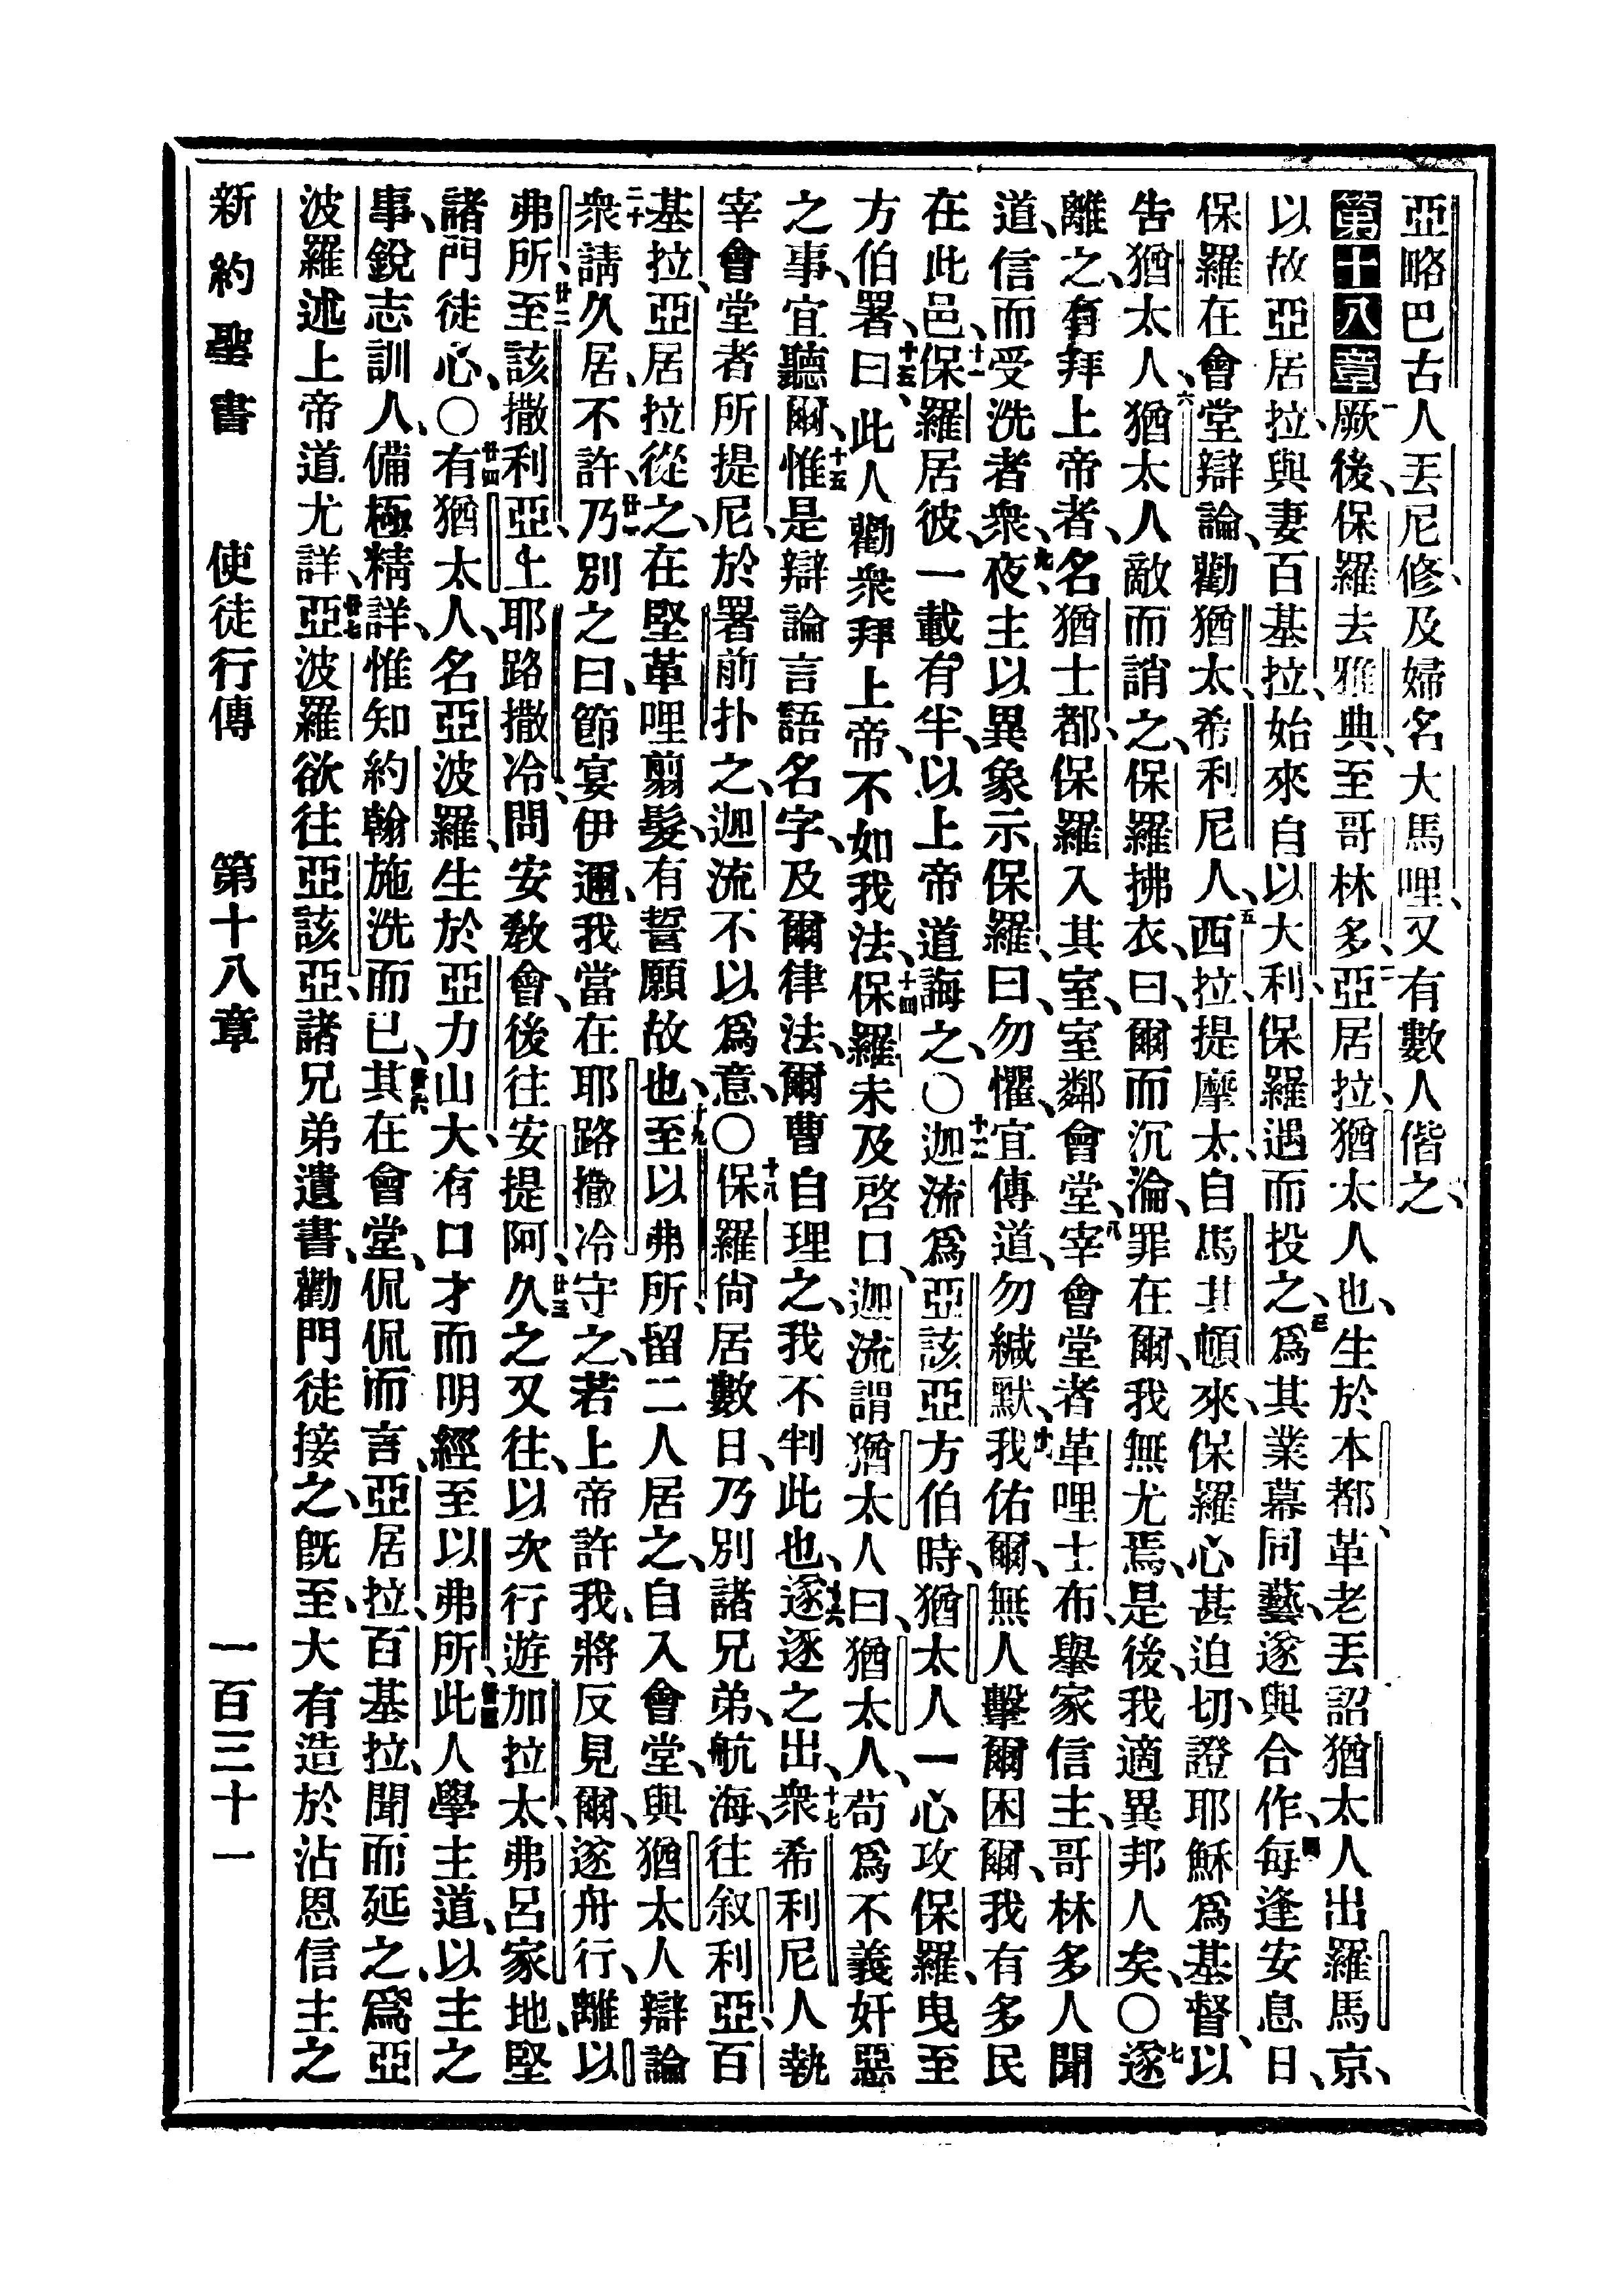 亞略巴古人丟尼修及婦名大馬哩、又有數人偕之、
第十八章一厥後、保羅去雅典、至哥林多、二亞居拉、猶太人也、生於本都、革老丟詔猶太人出羅馬京、
以故亞居拉、與妻百基拉、始來自以大利、保羅遇而投之、三爲其業幕同藝、遂與合作、四每逢安息日、
保羅在會堂辯論、勸猶太、希利尼人、五西拉、提摩太、自馬其頓來、保羅心甚迫切、證耶穌爲基督、以
告猶太人、六猶太人人敵而誚之、保羅拂衣、曰、爾而沉淪、罪在爾、我無尤焉、是後、我適異邦人矣、〇七遂
離之、有拜上帝者、名猶士都、保羅入其室、室鄰會堂、八宰會堂者革哩士布、舉家信主、哥林多人聞
道、信而受洗者衆、九夜、主以異象示保羅、曰、勿懼、宜傳道、勿緘默、十我佑爾、無人擊爾困爾、我有多民
在此邑、十一保羅居彼、一載有半、以上帝道誨之、〇十二迦流爲亞該亞方伯時、猶太人一心攻保羅、曳至
方伯署、十三曰、此人勸衆拜上帝、不如我法、十四保羅未及啓口、迦流謂猶太人曰、猶太人、苟爲不義奸惡
之事、宜聽爾、十五惟是辯論言語名字、及爾律法、爾曹自理之、我不判此也、十六遂逐之出、十七衆希利尼人執
宰會堂者所提尼、於署前扑之、迦流不以爲意、〇十八保羅尙居數日、乃別諸兄弟、航海、往叙利亞、百
基拉、亞居拉從之、在堅革哩翦髮、有誓願故也、十九至以弗所、留二人居之、自入會堂、與猶太人辯論
二十衆請久居、不許、廿一乃別之曰、節宴伊邇、我當在耶路撒冷守之、若上帝許我、將反見爾、遂舟行、離以
弗所、廿二至該撒利亞、上耶路撒冷、問安敎會、後往安提阿、廿三久之又往、以次行遊加拉太、弗呂家地、堅
諸門徒心、〇廿四有猶太人、名亞波羅、生於亞力山大、有口才而明經、至以弗所、廿五此人學主道、以主之
事、銳志訓人、備極精詳、惟知約翰施洗而已、廿六其在會堂、侃侃而言、亞居拉、百基拉、聞而延之、爲亞
波羅述上帝道尤詳、廿七亞波羅欲往亞該亞、諸兄弟遺書、勸門徒接之、旣至、大有造於沾恩信主之
新約聖書 使徒行傳 第十八章 一百三十一